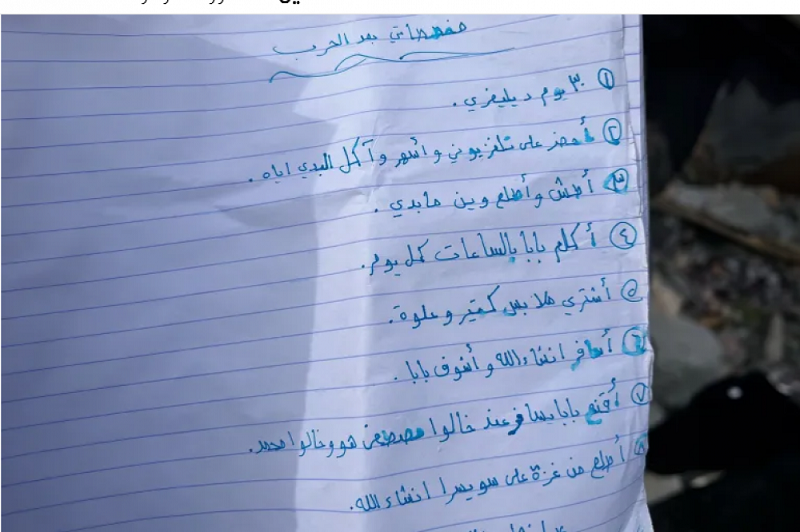 مخططاتي بعد الحرب
① ٣٠ يوم ديليفري.
② أحضر على تلفزيوني وأسهر وآكل البدي اياه.
③ أطش وأطلع وين مابدي.
④ أكلم بابا بالساعات كل يوم.
⑤ أشتري ملابس كتير وحلوة.
⑥ أسافر انشاءالله وأشوف بابا.
⑦ أقنع بابا يسافر عند خالوا مصطفى هو وخالوا محمد.
⑧ أطلع من غزة على سويسرا انشاءالله.